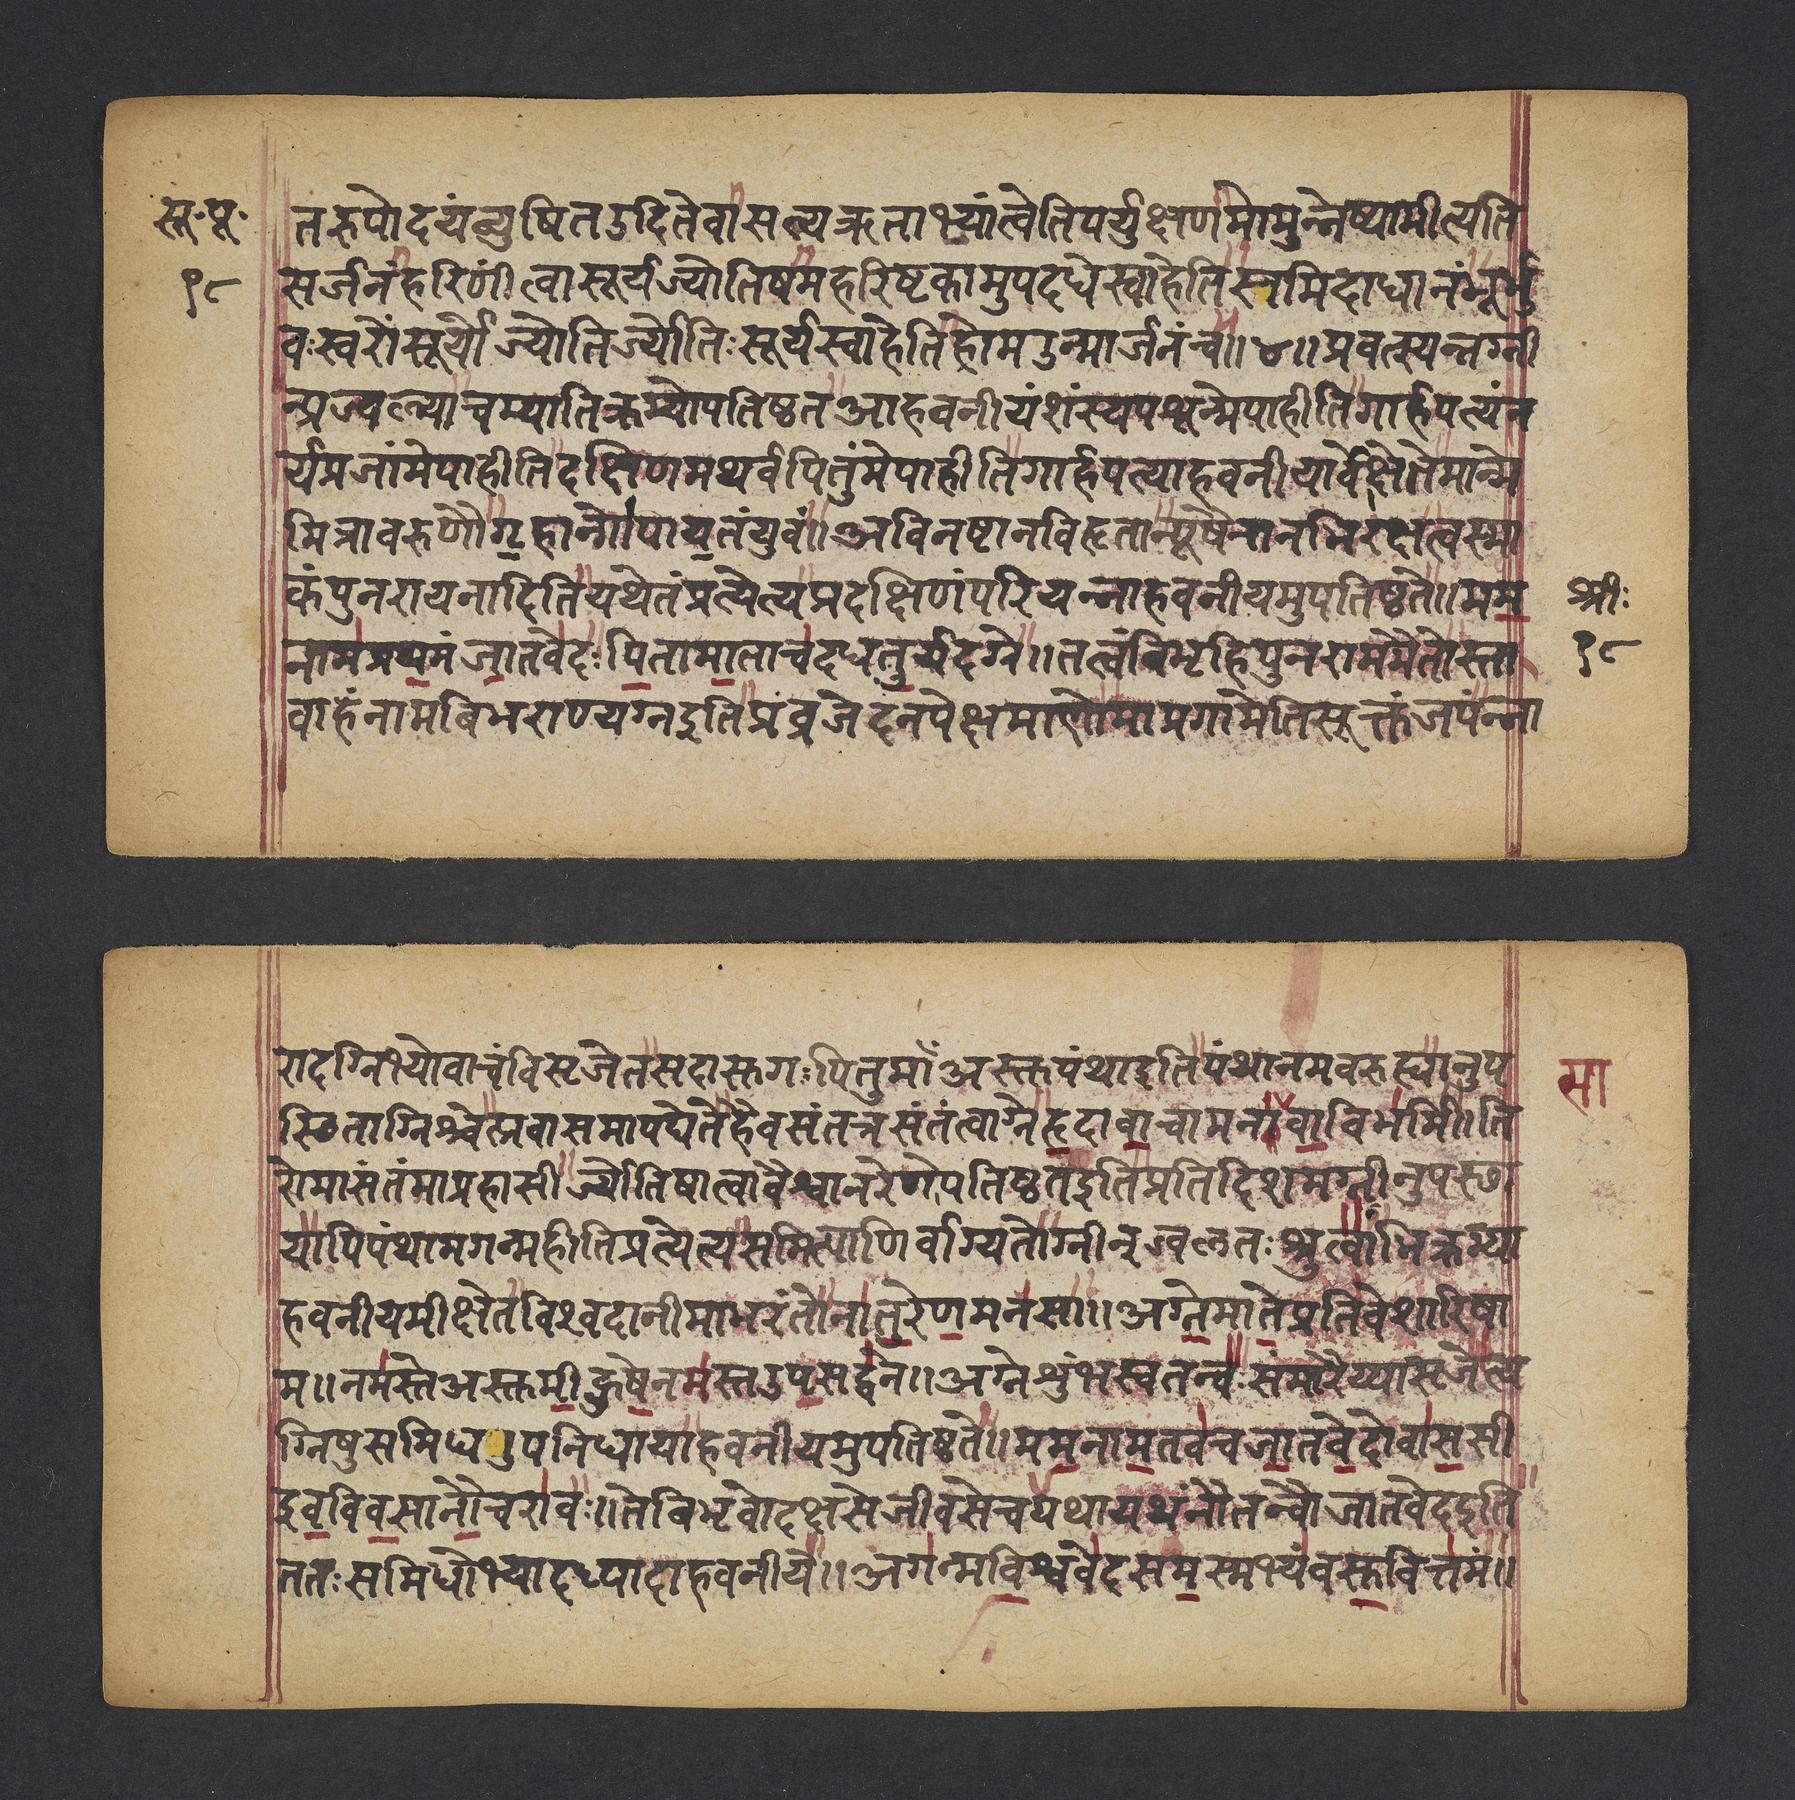 सू. पू.
१८
तरुपोदयंव्युषितउदितेवासत्यऋताभ्यांत्वेतिपर्युक्षणमोमुन्नेष्यामीत्यति
सर्जनंहरिणीं त्वासूर्यज्योतिषमहरिष्टकामुपदधेस्वाहेति समिदाधानंभूर्भु
वःस्वरों सूर्यो ज्योतिर्ज्योतिःसूर्यस्वाहेतिहोमउन्मार्जनंच॥४॥प्रवत्स्यन्नग्नी
न्प्रज्वल्याचम्यातिक्रम्योपतिष्ठत आहवनीयंशंस्यपशून्मेपाहीतिगार्हपत्यंन
र्यप्रजांमेपाहीतिदक्षिणमथर्वपितुंमेपाहीतिगार्हपत्याहवनीयावीक्षेतेमान्मे
मित्रावरुणौगृहान्गोपायतंयुवं॥अविनष्टानविहृतान्पूषैनानभिरक्षत्वस्मा
कंपुनरायनादितियथेतंप्रत्येत्यप्रदक्षिणंपरियन्नाहवनीयमुपतिष्ठते॥मम
नामप्रथमं जातवेदः पितामाताचदधतुर्यदग्रे॥तत्त्वंबिभृहिपुनरामममैतोस्तवा
वाहंनामबिभराण्यग्नइतिप्रंव्रजेदनपेक्षमाणोमाप्रगामेतिसूक्तंजपंन्ना
श्रीः
१८
रादग्निभ्योवाचंविसृजेतसदासुगःपितुमाँ अस्तुपंथाइतिपंथानमवरुह्यानुप
स्थिताग्निश्चेत्प्रवासमापद्येतेहैवसंतत्रसंतंत्वाग्नेहृदावाचामनसावाबिभर्मि।ति
रोमासंतंमाप्रहासीर्ज्योतिषात्वावैश्वानरेणोपतिष्ठतइतिप्रतिदिशमग्नीनुपस्था
यापिपंथामगन्महीतिप्रत्येत्यसमित्पाणिर्वाग्यतोग्नीन्ज्वलतःश्रुत्वाभिक्रम्या
हवनीयमीक्षेतविश्वदानीमाभरंतोनातुरेणमनसा॥अग्नेमातेप्रतिवेशारिषा
म॥नमस्तेअस्तुमीह्ळुषेनमस्तउपसद्वने॥अग्नेशुंभस्वतन्वःसंमारय्यासृजेत्य
ग्निषुसमिधउपनिधायाहवनीयमुपतिष्ठते॥ममनामतवचजातवेदोवाससी
इवविवसानौचरावः॥तेबिभृवोदक्षसेजीवसेचयथायथंनौतन्वौजातवेदइति
ततःसमिधोभ्यादध्यादाहवनीये॥अगन्मविश्ववेदसमस्मभ्यंवसुवित्तमं॥
मा